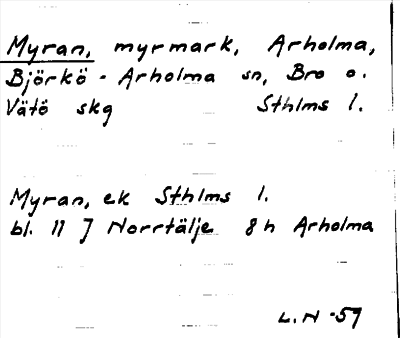 Myran, myrmark, Arholma,
Björkö - Arholma sn, Bro o.
Vätö skg Sthlms l.
Myran, ek Sthlms l.
bl. 11 J Norrtälje 8 h Arholma
L. N -59